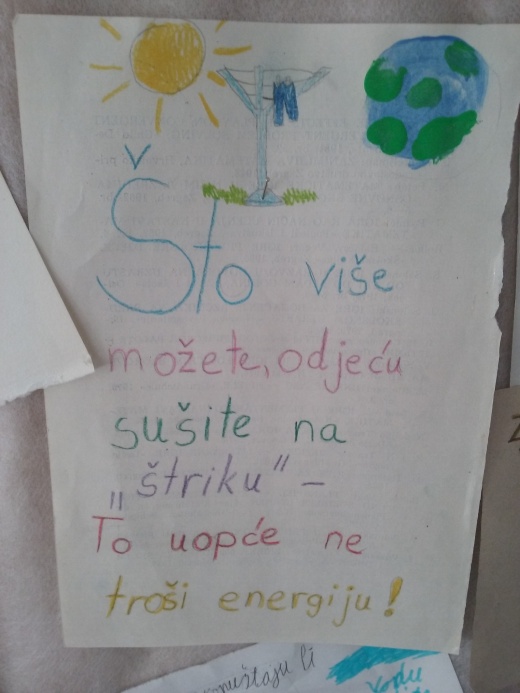 Što više
možete, odjeću
sušite na
„štriku" –
To uopće ne
troši energiju!